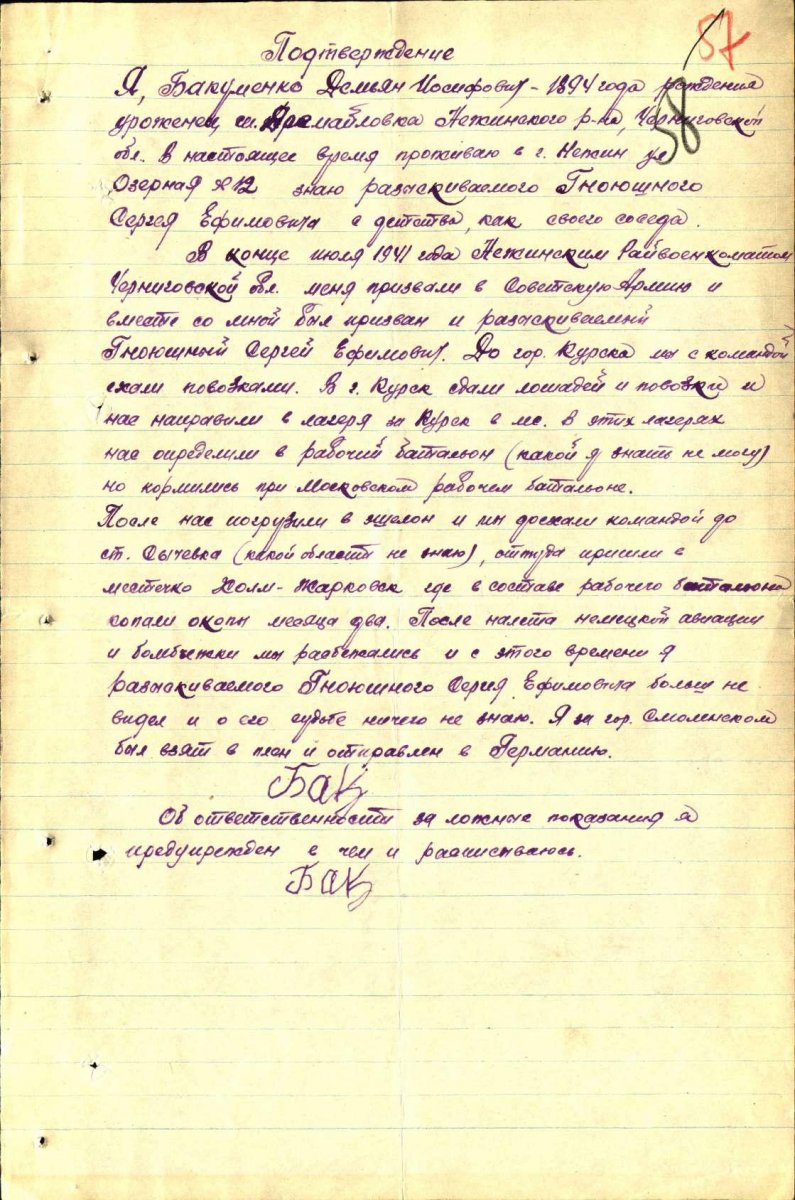 57
58
Подтверждение
Я, Бакуменко Демьян Иосифович - 1894 года рождения
уроженец Нежинского р-на, Черниговской
обл. В настоящее время проживаю в г. Нежин ул
Озерная № 12 знаю разыскиваемого Гноюшного
Сергея Ефимовича с детства, как своего соседа.
В конце июля 1941 года Нежинским Райвоенкоматом
Черниговской обл. меня призвали в Советскую Армию и
вместе со мной был призван и разыскиваемый
Гноюшный Сергей Ефимович. До гор. Курска мы с командой
ехали повозками. В г. Курск сдали лошадей и повозки и
нас направили в лагеря за Курск в лес. В этих лагерях
нас определили в рабочий батальон (какой я знать не могу)
но кормились при Московском рабочем батальоне.
После нас погрузили в эшелон и мы доехали командой до
ст. Сычевка (какой области не знаю), оттуда пришли в
местечко Холм-Жарковск где в составе рабочего батальона
копали окопы месяца два. После налета немецкой авиации
и бомбежки мы разбежались и с этого времени я
разыскиваемого Гноюшного Сергея Ефимовича больш не
видел и о его судьбе ничего не знаю. Я за гор. Смоленском
был взят в плен и отправлен в Германию.
Бак
Об ответственности за ложные показания я
предупрежден в чем и расписываюсь.
Бак